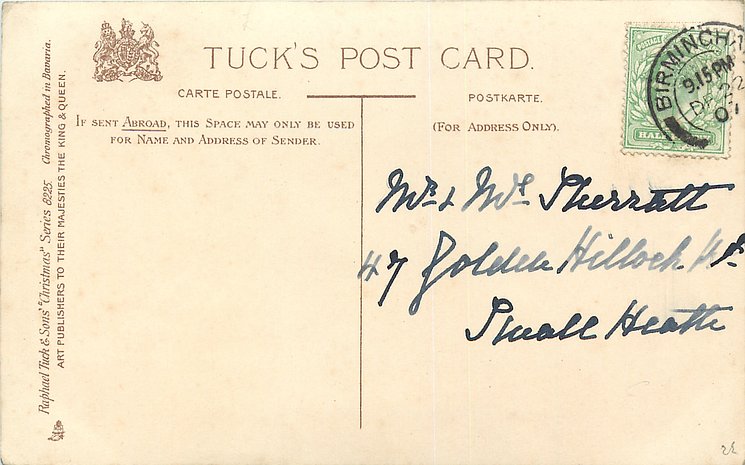 TUCK'S POST CARD.
CARTE POSTALE.
POSTKARTE.
IF SENT ABROAD, THIS SPACE MAY ONLY BE USED
FOR NAME AND ADDRESS OF SENDER.
(FOR ADDRESS ONLY).
Raphael Tuck & Sons' "Christmas" Series 8225 Chromographed in Bavaria.
ART PUBLISHERS TO THEIR MAJESTIES THE KING & QUEEN.
POSTAGE
HALF
BIRMINGH
9.15 PM
DE 22
07
Mr & Mrs Sherratt
47 Golden Hillock Rd
Small Heath